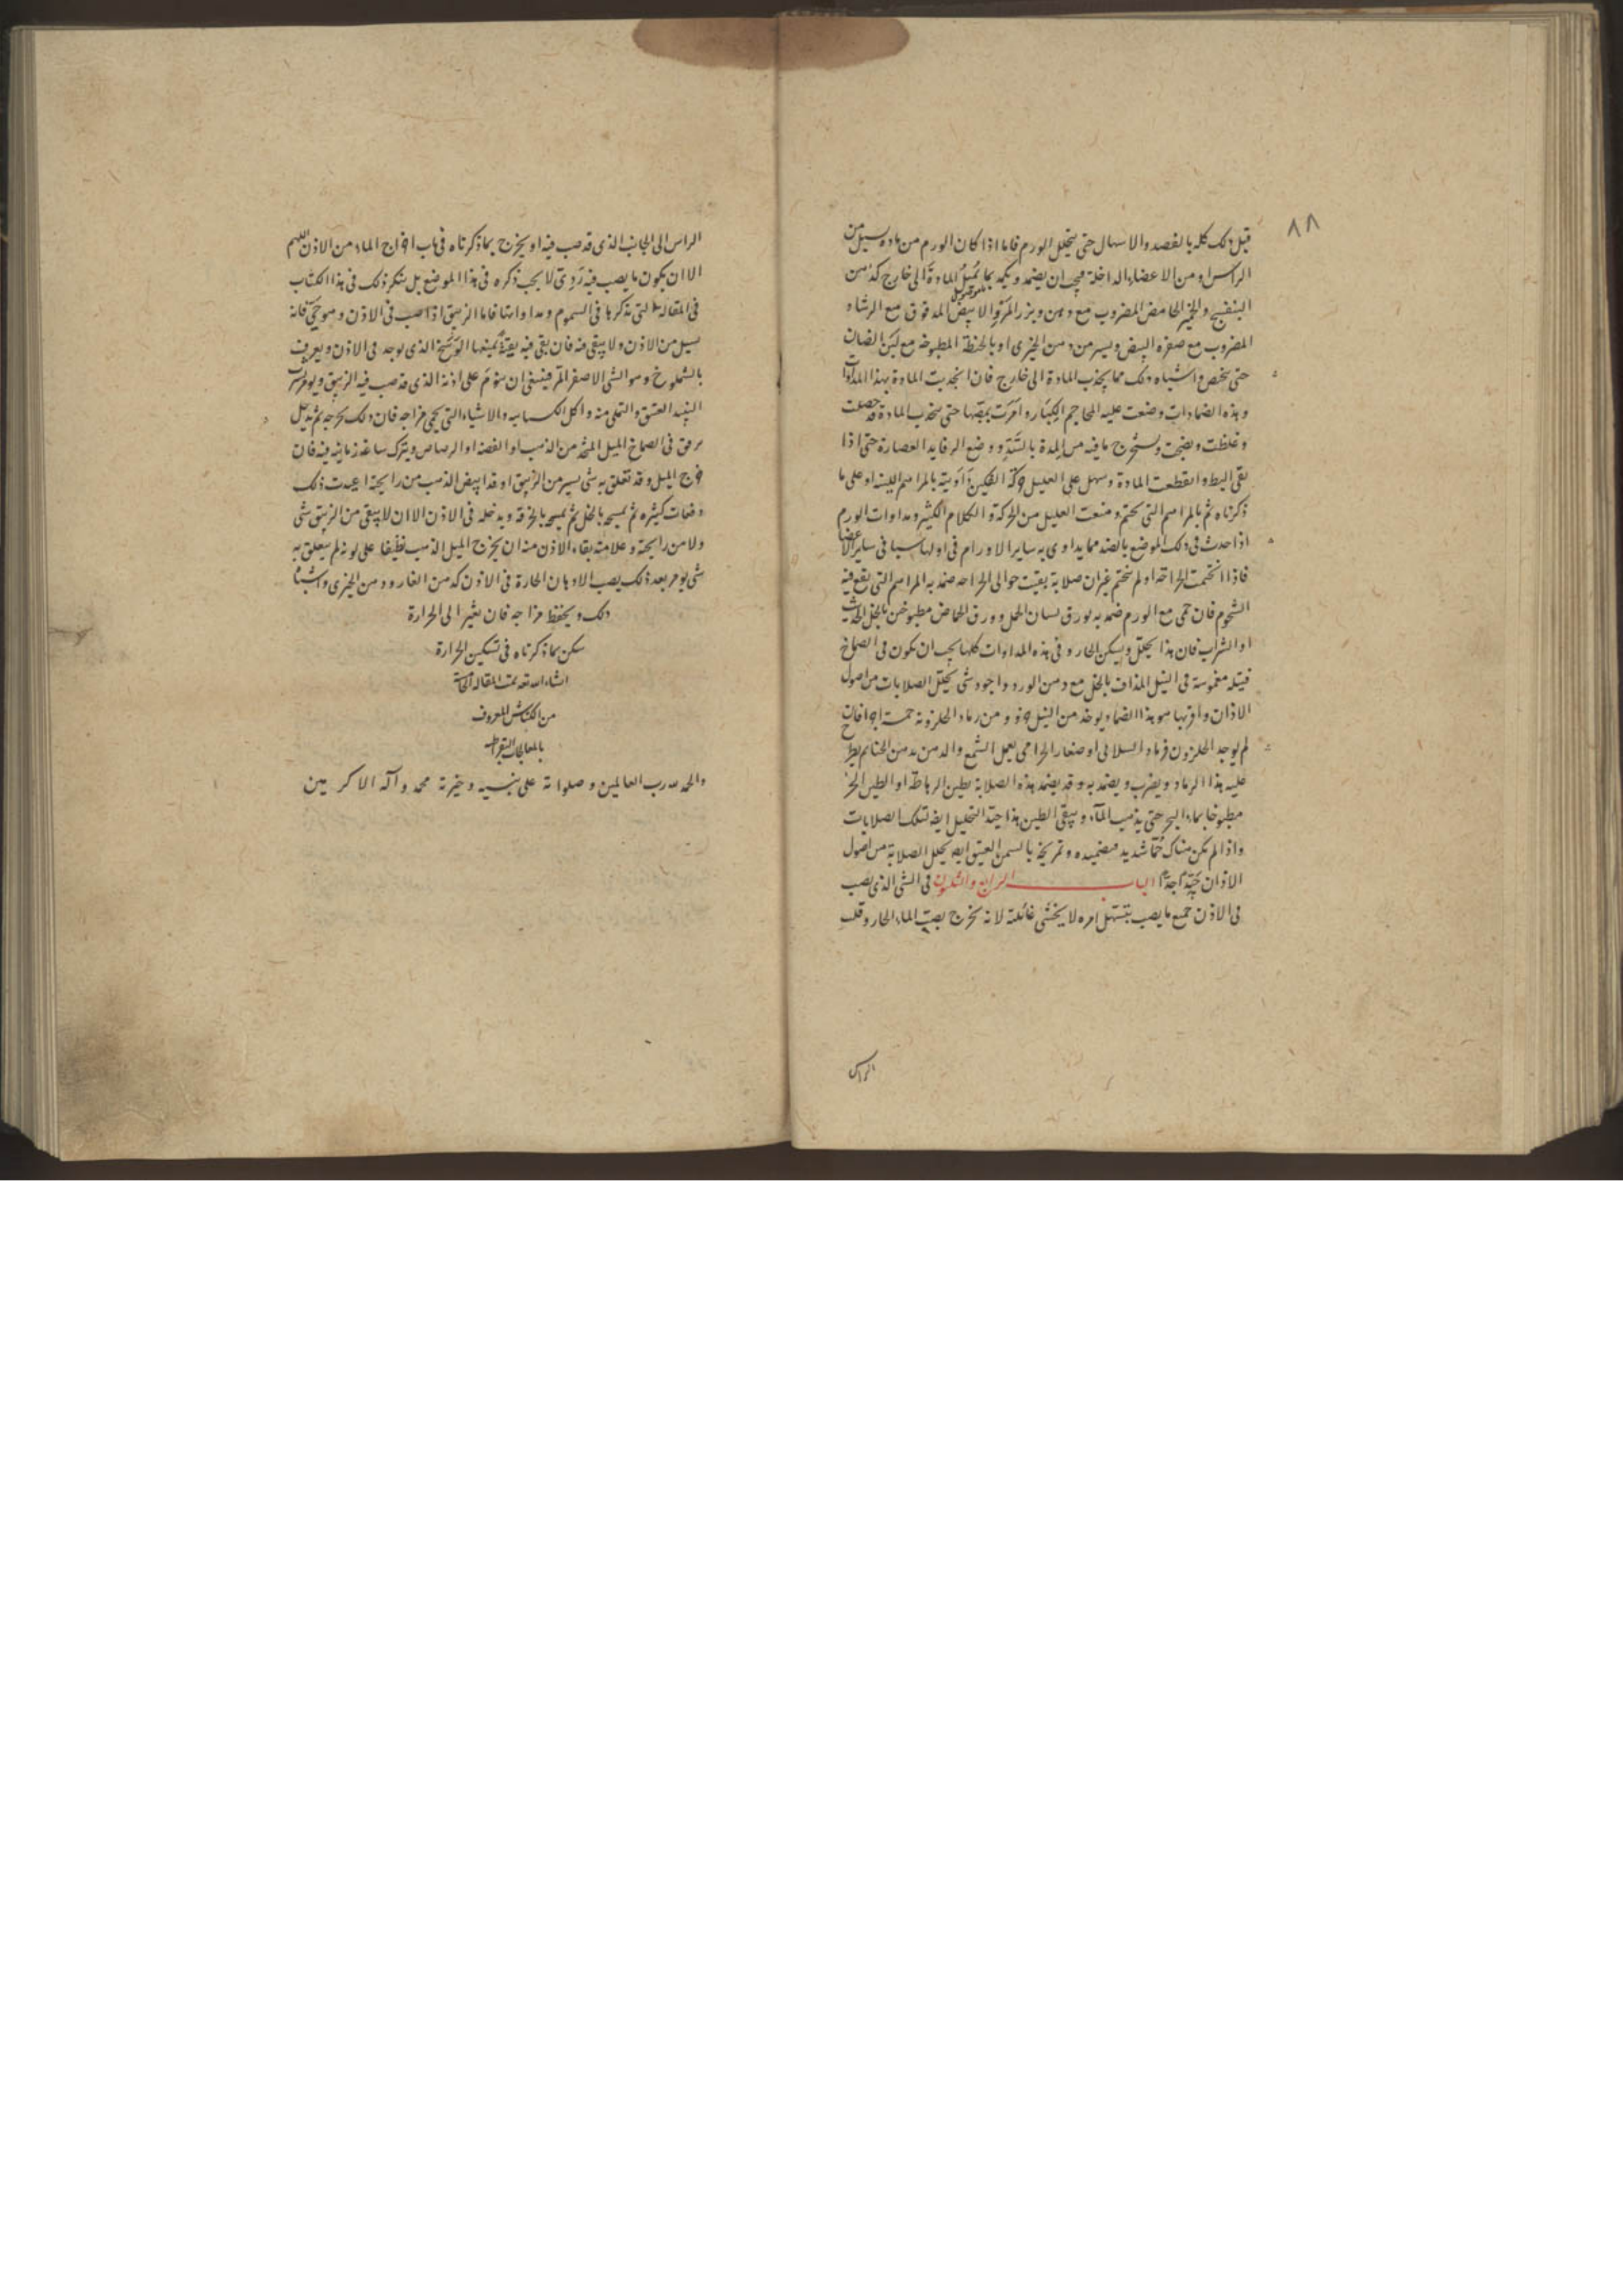 ٨٨
قبل ذلك كله بالفصد والاسهال حتى يتحلل الورم فاما اذا كان الورم من مادة تسيل من
الراس او من الاعضاء الداخلة فيجب ان يضمد ويكمد بما يميل المادة الى خارج كدهن
البنفسج والخمير الحامض المضروب مع دهن وبزر المرو الابيض المدقوق مع الرشاد
المضروب مع صفرة البيض ويسير من دهن الخيرى او بالحنطة المطبوخة مع لبن الضان
حتى يشخص واشباه ذلك مما يجذب المادة الى خارج فان انجذبت المادة بهذا المداواة
وبهذه الضمادات وضعت عليه المحاجم الكبار وامرت بمصها حتى تنجذب المادة قد حصلت
وغلظت ونضجت ويستخرج ما فيه من المدة بالشد ووضع الرفايد العصارة حتى اذا
بقى البط وانقطعت المادة وسهل على العليل حركة الفكين داويته بالمراهم اللينة او على ما
ذكرناه ثم بالمراهم التى تختم ومنعت العليل من الحركة والكلام الكثير ومداوات الورم
اذا حدث فى ذلك الموضع بالضد مما يداوى به ساير الاورام فى اولها سيما فى ساير الاعضا
فاذا التحمت الجراحة او لم تختم غير ان صلابة بقيت حوالى الجراحة ضمد به المراهم التى يقع فيه
الشحوم فان حمى مع الورم ضمد به بورق لسان الحمل وورق الحماض مطبوخين بالخل الحديث
او الشراب فان هذا يحلل ويسكن الحار وفى هذه المداوات كلها يجب ان تكون فى الصماخ
فتيلة مغموسة فى النيل المذاف بالخل مع دهن الورد واجود شى يحلل الصلابات من اصول
الاذان واقربها هو هذا الضماد يوخذ من النيل جزو ومن رماد الحلزونة خمسة اجزا فان
لم يوجد الحلزون فرماد السلافى او صغار الحرامى يعمل الشمع والدهن من دهن الحنا ثم يطرح
عليه هذا الرماد ويضرب ويضمد به وقد يضمد هذه الصلابة بطين الرهاطة او الطين الحر
مطبوخا بماء البحر حتى يذهب الماء ويبقى الطين هذا جيد التحليل ايضا لتلك الصلابات
واذا لم يكن هناك حما شديد فتضميده وتمريخه بالسمن العتيق ايضا يحلل الصلابة من اصول
الاذان جيدا جدا الباب الرابع والثلثون فى الشى الذى يصب
فى الاذن جميع ما يصب يتسهل امره لا يخشى غائلته لانه يخرج بصب الماء الحار وقلب
الراس
الراس الى الجانب الذى قد صب فيه او يخرج بما ذكرناه فى باب اخراج الماء من الاذن اللهم
الا ان يكون ما يصب فيه ردى لا يجب ذكره فى هذا الموضع بل سنكر ذلك فى هذا الكتاب
فى المقالة التى نذكرها فى السموم ومداواتها فاما الزيبق اذا صب فى الاذن وهو حى فانه
يسيل من الاذن ولا يبقى منه فان بقى فيه بقية يمنعها الوسخ الذى يوجد فى الاذن ويعرف
بالشملوخ وهو الشى الاصفر المر فينبغى ان ينوم على اذنه الذى قد صب فيه الزيبق ويومر بشرب
النبيذ العتيق والتملى منه واكل الكسبايه والاشياء التى يحمى مزاجه فان ذلك يخرجه ثم يدخل
برفق فى الصماخ الميل المتخذ من الذهب او الفضة او الرصاص ويترك ساعة زمانية فيه فان
خرج الميل وقد تعلق به شى يسير من الزيبق او قد ابيض الذهب من رايحته اعيدت ذلك
دفعات كثيره ثم يمسح بالخل ثم يمسح بالخرقة ويدخله فى الاذن الا ان لا يبقى من الزيبق شى
ولا من رايحته وعلامة بقاء الاذن منه ان يخرج الميل الذهب نظيفا على لونه لم يتعلق به
شى يومر بعد ذلك بصب الادهان الحارة فى الاذن كدهن الغار ودهن الخيرى واشباه
ذلك ويحفظ مزاجه فان تغير الى الحرارة
سكن بما ذكرناه فى تسكين الحرارة
انشاء الله تعه تمت المقالة الخامسة
من الكناش المعروف
بالمعالجات البقراطية
والحمد لله رب العالمين وصلواته على نبييه وخيرته محمد وآله الاكرمين